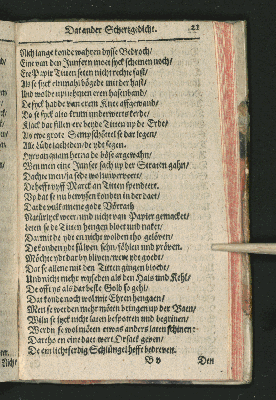 Dat ander Schertzgedicht. 21
Nich lange konde wahren dysse Bedroch/
Eine van den Junfern moest sick schemen noch/
Ere Papir Titten seten nicht rechte fast/
Als se sick einmahl bögede mit der hast/
Und wolde up nehmen eren hasenband/
De sick hadde van erem Knee affgewand/
Do se sick also krum underwerts kerde/
Klack dar fillen ere beyde Titten up de Erde/
Als ewe grote Semp schöttel se dar legen/
Alle Lüde lacheden/ de ydt segen.
Hyr van quam herna de böse argewahn/
Wen men eine Junfer sach up der Straten gahn/
Dachte men/ ja sede wol unverport/
De hefft vyff Marck an Titten spenderet.
Up dat se nu bewysen konden in der daet/
Dat de vull ammene gode Vörrath
Natürlyck weer/ und nicht van Papier gemacket/
Leten se de Titten hengen bloet und naket/
Dar mit de yde en nich wolden tho gelöven/
De konden ydt fülven sehn/ föhlen und pröven.
Möchte ydt dar by bliven/ wen ydt goedt/
Dat se allene mit den Titten gingen bloedt/
Und nicht mehr wyseden als den Hals und Kehl/
De offt ys als dat beste Gold so gehl/
Dat konde noch wol mit Ehren hengaen/
Men se werden mehr möten bringen up der Baen/
Wiln se sick nicht laten bespotten und begrinen/
Werdn se wol möten etwas anders laten schinen:
Dartho en eine daet weer Orsack geven/
De em lichtferdig Schlüngel heffe bedreven.
B v Den